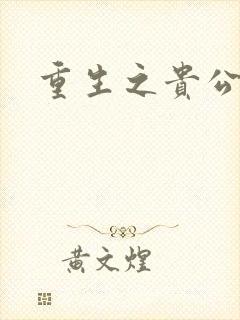 重生之貴公
黃文煌